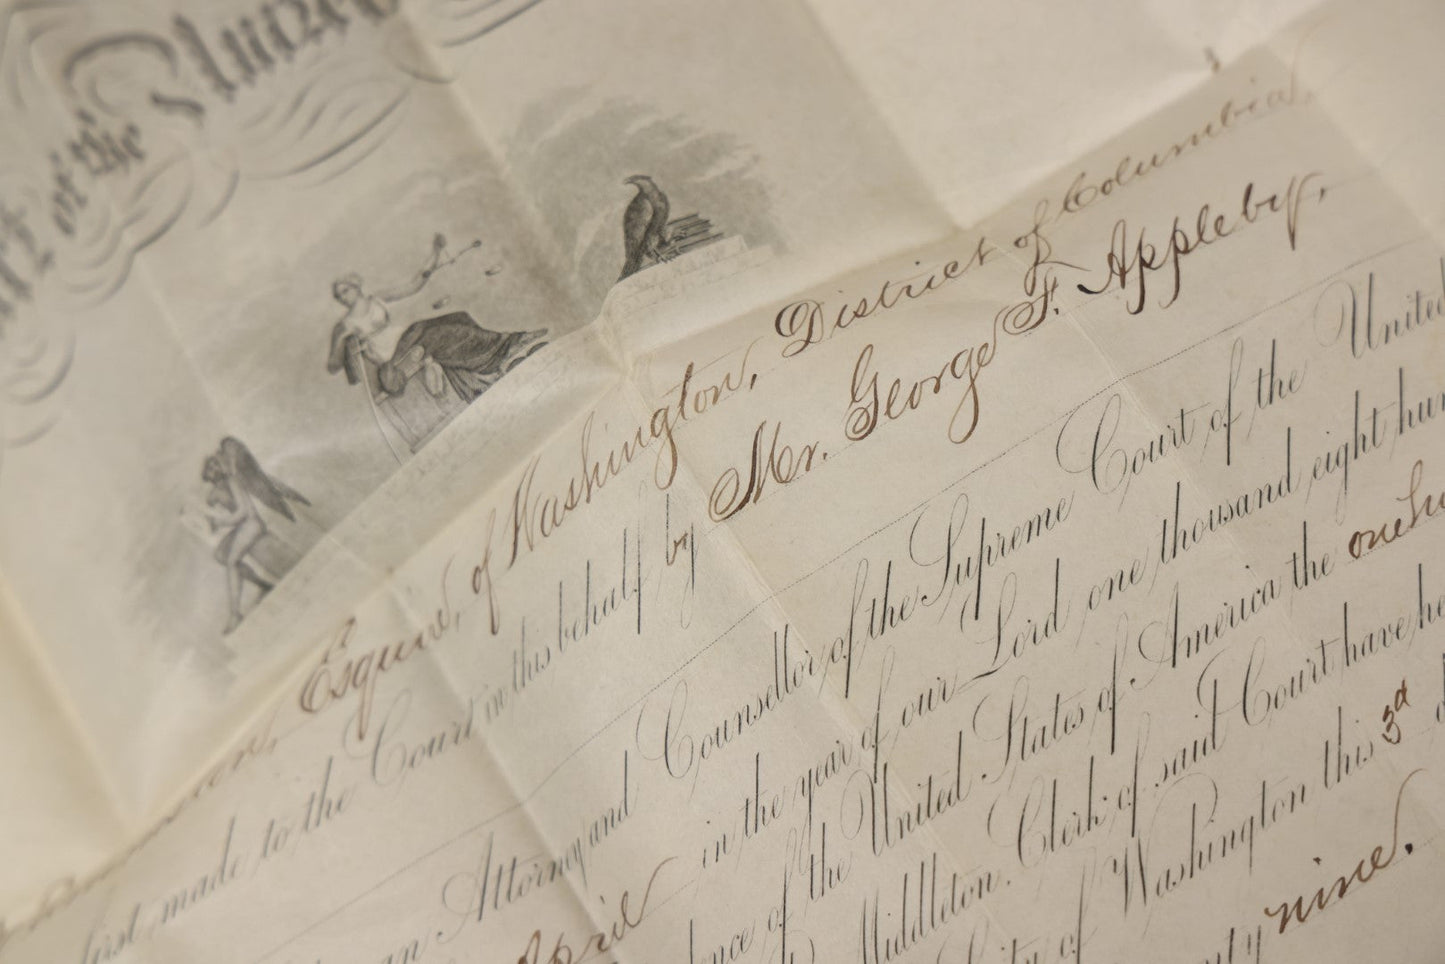 of the
Esquire, of Washington, District of Columbia,
first made to the Court in this behalf by Mr. George F. Appleby,
an Attorney and Counsellor of the Supreme Court of the United
April in the year of our Lord one thousand eight
of the United States of America the one
Middleton, Clerk of said Court have
City of Washington this 3d
nine.